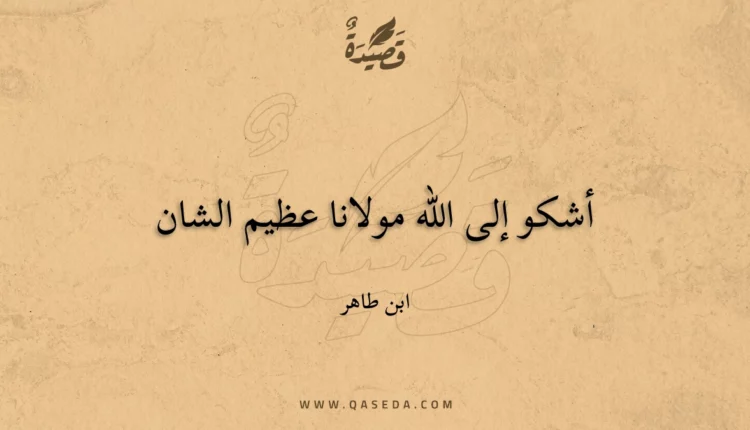 قَصِيدَةٌ
أشكو إلى الله مولانا عظيم الشان
ابن طاهر
WWW.QASEDA.COM